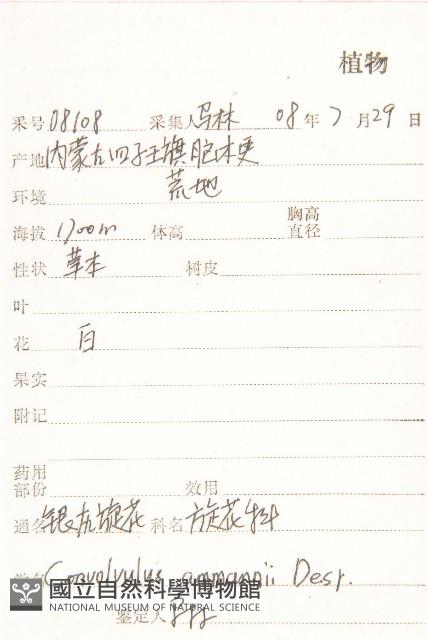 植物
采号 08108 采集人 马林 08 年 7 月 29 日
产地 内蒙古四子王旗
环境 荒地
胸高
海拔 1700m 体高 直径
性状 草本 树皮
叶
花 白
果实
附记
药用
部份 效用
通名 银灰旋花 科名 旋花科
Convolvulus ammannii Desr.
國立自然科學博物館
NATIONAL MUSEUM OF NATURAL SCIENCE
鉴定人